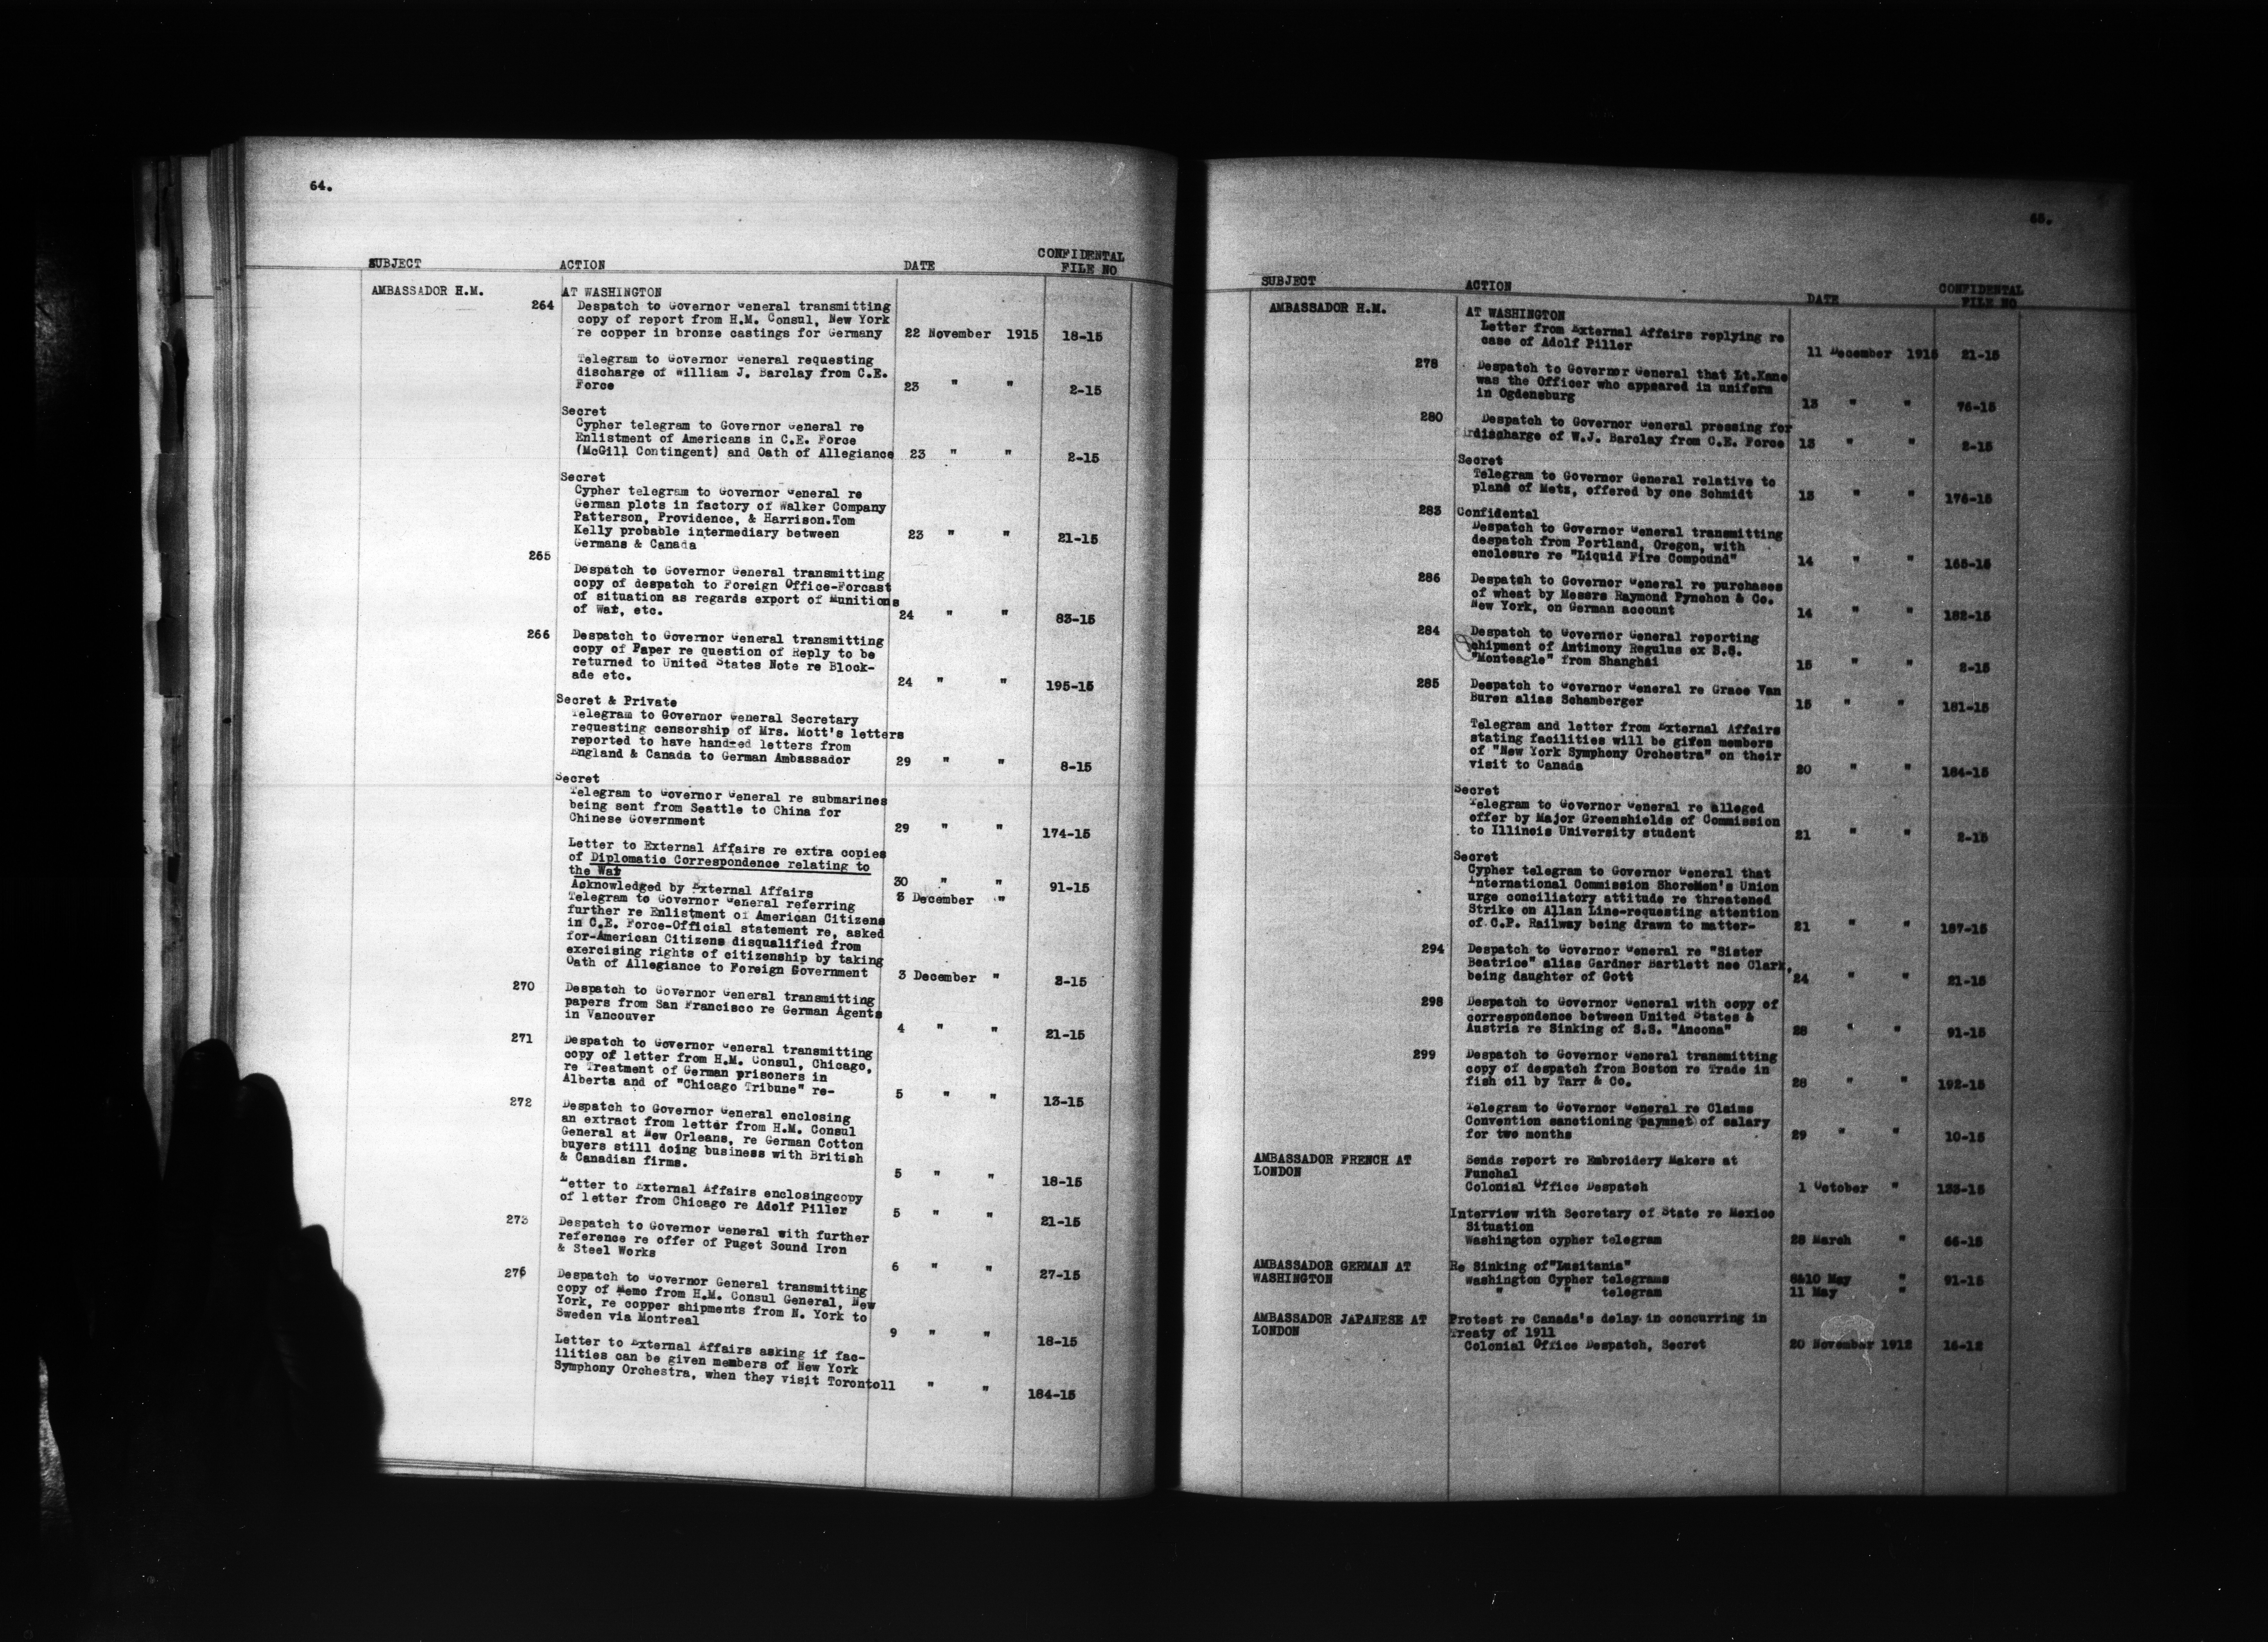 64.
SUBJECT ACTION DATE CONFIDENTAL FILE NO
AMBASSADOR H.M. AT WASHINGTON
264 Despatch to Governor General transmitting
copy of report from H.M. Consul, New York
re copper in bronze castings for Germany 22 November 1915 18-15
Telegram to Governor General requesting
discharge of William J. Barclay from C.E.
Force 23 " " 2-15
Secret
Cypher telegram to Governor General re
Enlistment of Americans in C.E. Force
(McGill Contingent) and Oath of Allegiance 23 " " 2-15
Secret
Cypher telegram to Governor General re
German plots in factory of Walker Company
Patterson, Providence, & Harrison.Tom
Kelly probable intermediary between
Germans & Canada 23 " " 21-15
265
Despatch to Governor General transmitting
copy of despatch to Foreign Office-Forcast
of situation as regards export of Munitions
of War, etc. 24 " " 83-15
266 Despatch to Governor General transmitting
copy of Paper re question of Reply to be
returned to United States Note re Block-
ade etc. 24 " " 195-15
Secret & Private
Telegram to Governor General Secretary
requesting censorship of Mrs. Mott's letters
reported to have handed letters from
England & Canada to German Ambassador 29 " " 8-15
Secret
Telegram to Governor General re submarines
being sent from Seattle to China for
Chinese Government 29 " " 174-15
Letter to External Affairs re extra copies
of Diplomatic Correspondence relating to
the War 30 " " 91-15
Acknowledged by External Affairs 3 December "
Telegram to Governor General referring
further re Enlistment of American Citizens
in C.E. Force-Official statement re, asked
for-American Citizens disqualified from
exercising rights of citizenship by taking
Oath of Allegiance to Foreign Government 3 December " 2-15
270 Despatch to Governor General transmitting
papers from San Francisco re German Agents
in Vancouver 4 " " 21-15
271 Despatch to Governor General transmitting
copy of letter from H.M. Consul, Chicago,
re Treatment of German prisoners in
Alberta and of "Chicago Tribune" re- 5 " " 13-15
272 Despatch to Governor General enclosing
an extract from letter from H.M. Consul
General at New Orleans, re German Cotton
buyers still doing business with British
& Canadian firms. 5 " " 18-15
Letter to External Affairs enclosingcopy
of letter from Chicago re Adolf Piller 5 " " 21-15
273 Despatch to Governor General with further
reference re offer of Puget Sound Iron
& Steel Works 6 " " 27-15
276 Despatch to Governor General transmitting
copy of Memo from H.M. Consul General, New
York, re copper shipments from N. York to
Sweden via Montreal 9 " " 18-15
Letter to External Affairs asking if fac-
ilities can be given members of New York
Symphony Orchestra, when they visit Toronto11 " " 184-15
65.
SUBJECT ACTION DATE CONFIDENTAL FILE NO
AMBASSADOR H.M. AT WASHINGTON
Letter from External Affairs replying re
case of Adolf Piller 11 December 1915 21-15
278 Despatch to Governor General that Lt.Kane
was the Officer who appeared in uniform
in Ogdensburg 13 " " 76-15
280 Despatch to Governor General pressing for
discharge of W.J. Barclay from C.E. Force 13 " " 2-15
Secret
Telegram to Governor General relative to
plans of Metz, offered by one Schmidt 13 " " 176-15
283 Confidental
Despatch to Governor General transmitting
despatch from Portland, Oregon, with
enclosure re "Liquid Fire Compound" 14 " " 165-15
286 Despatch to Governor General re purchases
of wheat by Messrs Raymond Pynchon & Co.
New York, on German account 14 " " 182-15
284 Despatch to Governor General reporting
shipment of Antimony Regulus ex S.S.
"Monteagle" from Shanghai 15 " " 2-15
285 Despatch to Governor General re Grace Van
Buren alias Schamberger 15 " " 181-15
Telegram and letter from External Affairs
stating facilities will be gifen members
of "New York Symphony Orchestra" on their
visit to Canada 20 " " 184-15
Secret
Telegram to Governor General re alleged
offer by Major Greenshields of Commission
to Illinois University student 21 " " 2-15
Secret
Cypher telegram to Governor General that
International Commission ShoreMen's Union
urge conciliatory attitude re threatened
Strike on Allan Line-requesting attention
of C.P. Railway being drawn to matter- 21 " " 187-15
294 Despatch to Governor General re "Sister
Beatrice" alias Gardner Bartlett nee Clark,
being daughter of Gott 24 " " 21-15
298 Despatch to Governor General with copy of
correspondence between United States &
Austria re Sinking of S.S. "Ancona" 28 " " 91-15
299 Despatch to Governor General transmitting
copy of despatch from Boston re Trade in
fish oil by Tarr & Co. 28 " " 192-15
Telegram to Governor General re Claims
Convention sanctioning paymnet of salary
for two months 29 " " 10-15
AMBASSADOR FRENCH AT Sends report re Embroidery Makers at
LONDON Funchal
Colonial Office Despatch 1 October " 133-15
Interview with Secretary of State re Mexico
Situation
Washington cypher telegram 28 March " 66-15
AMBASSADOR GERMAN AT Re Sinking of"Lusitania"
WASHINGTON Washington Cypher telegrams 8&10 May " 91-15
" " telegram 11 May "
AMBASSADOR JAPANESE AT Protest re Canada's delay in concurring in
LONDON Treaty of 1911
Colonial Office Despatch, Secret 20 November 1912 16-12